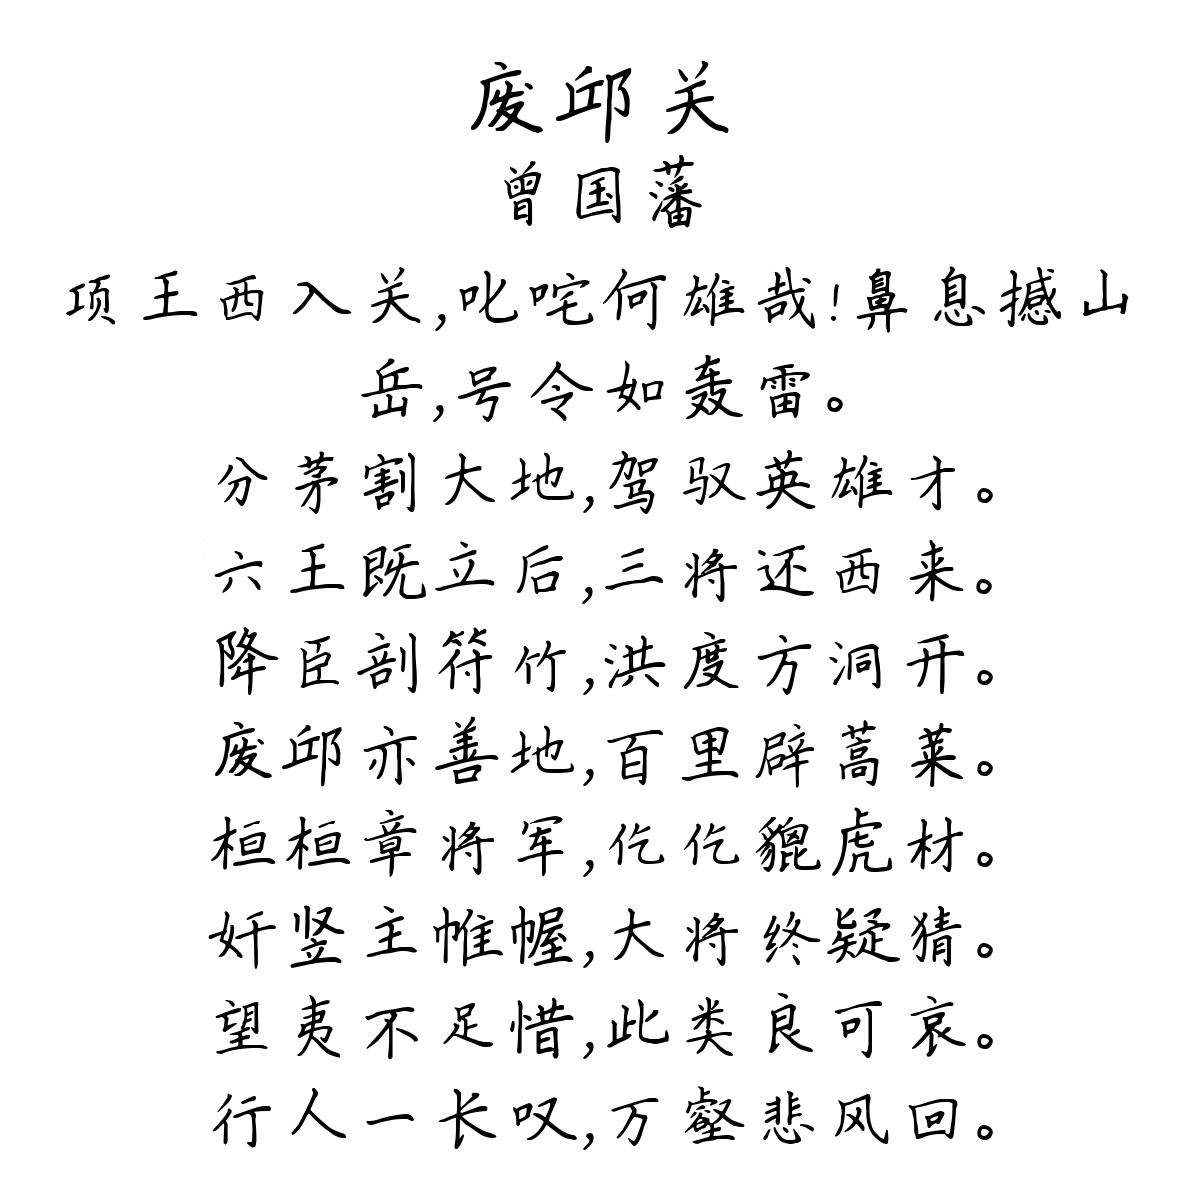 废邱关
曾国藩
项王西入关,叱咤何雄哉!鼻息撼山
岳,号令如轰雷。
分茅割大地,驾驭英雄才。
六王既立后,三将还西来。
降臣剖符竹,洪度方洞开。
废邱亦善地,百里辟蒿莱。
桓桓章将军,仡仡貔虎材。
奸竖主帷幄,大将终疑猜。
望夷不足惜,此类良可哀。
行人一长叹,万壑悲风回。